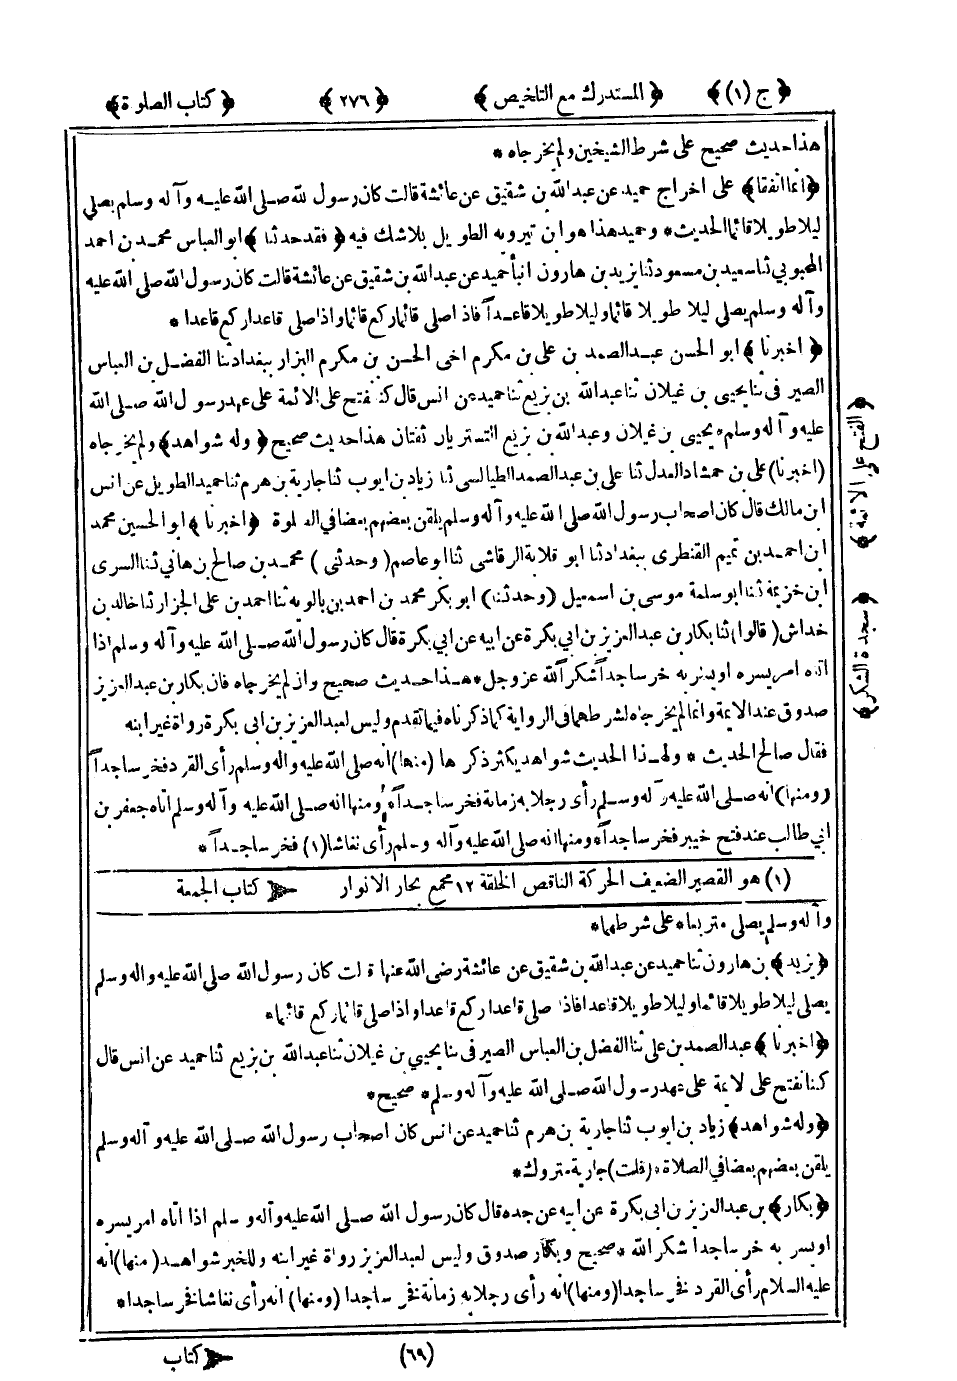 ﴿ ج (١) ﴾ ﴿ المستدرك مع التلخيص ﴾ ﴿ ٢٧٦ ﴾ ﴿ كتاب الصلوة ﴾
هذا حديث صحيح على شرط الشيخين ولم يخرجاه *
﴿ انما اتفقا ﴾ على اخراج حميد عن عبد الله بن شقيق عن عائشة قالت كان رسول الله صلى الله عليه وآله وسلم يصلى
ليلا طويلا قائما الحديث * وحميد هذا هو ابن تيرويه الطويل بلاشك فيه ﴿ فقد حدثنا ﴾ ابو العباس محمد بن احمد
المحبوبي ثنا سعيد بن مسعود ثنا يزيد بن هارون انبأ حميد عن عبد الله بن شقيق عن عائشة قالت كان رسول الله صلى الله عليه
وآله وسلم يصلى ليلا طويلا قائما وليلا طويلا قاعدآ فاذا صلى قائما ركع قائما واذا صلى قاعدا ركع قاعدا *
﴿ اخبرنا ﴾ ابو الحسن عبد الصمد بن على بن مكرم اخى الحسن بن مكرم البزار ببغداد ثنا الفضل بن العباس
الصيرفى ثنا يحيى بن غيلان ثنا عبد الله بن بزيع ثنا حميد عن انس قال كنا نفتح على الائمة على عهد رسول الله صلى الله
عليه وآله وسلم * يحيى بن غيلان وعبد الله بن بزيع التستريان ثقتان هذا حديث صحيح ﴿ وله شواهد ﴾ ولم يخرجاه
(اخبرنا) على بن حمشاد العدل ثنا على بن عبد الصمد الطيالسى ثنا زياد بن ايوب ثنا جارية بن هرم ثنا حميد الطويل عن انس
ابن مالك قال كان اصحاب رسول الله صلى الله عليه وآله وسلم يلقن بعضهم بعضا فى الصلوة ﴿ اخبرنا ﴾ ابو الحسين محمد
ابن احمد بن تميم القنطرى ببغداد ثنا ابو قلابة الرقاشى ثنا ابو عاصم (وحدثنى) محمد بن صالح بن هانئ ثنا السرى
ابن خزيمة ثنا ابو سلمة موسى بن اسمعيل (وحدثنا) ابو بكر محمد بن احمد بن بالويه ثنا احمد بن على الجزار ثنا خالد بن
خداش (قالوا) ثنا بكار بن عبد العزيز بن ابى بكرة عن ابيه عن ابى بكرة قال كان رسول الله صلى الله عليه وآله وسلم اذا
اتاه امر يسره او يسر به خر ساجدآ شكرآ لله عزوجل * هذا حديث صحيح وان لم يخرجاه فان بكار بن عبد العزيز
صدوق عند الائمة وانما لم يخرجاه لشرطهما فى الرواية كما ذكرناه فيما تقدم وليس لعبد العزيز بن ابى بكرة رواة غير ابنه
فقال صالح الحديث * ولهذا الحديث شواهد يكثر ذكرها (منها) انه صلى الله عليه وآله وسلم رأى القرد فخر ساجدآ
(ومنها) انه صلى الله عليه وآله وسلم رأى رجلا به زمانة فخر ساجدآ * ومنها انه صلى الله عليه وآله وسلم اتاه جعفر بن
ابى طالب عند فتح خيبر فخر ساجدآ * ومنها انه صلى الله عليه وآله وسلم رأى نغاشا (١) فخر ساجدآ *
﴿ الفتح على الائمة ﴾
﴿ سجدة الشكر ﴾
(١) هو القصير الضعيف الحركة الناقص الخلقة ١٢ مجمع بحار الانوار كتاب الجمعة
وآله وسلم يصلى متربعا * على شرطهما *
﴿ يزيد ﴾ بن هارون ثنا حميد عن عبد الله بن شقيق عن عائشة رضى الله عنها قالت كان رسول الله صلى الله عليه وآله وسلم
يصلى ليلا طويلا قائما وليلا طويلا قاعدا فاذا صلى قاعدا ركع قاعدا واذا صلى قائما ركع قائما *
﴿ اخبرنا ﴾ عبد الصمد بن على ثنا الفضل بن العباس الصيرفى ثنا يحيى بن غيلان ثنا عبد الله بن بزيع ثنا حميد عن انس قال
كنا نفتح على الائمة على عهد رسول الله صلى الله عليه وآله وسلم * صحيح *
﴿ وله شواهد ﴾ زياد بن ايوب ثنا جارية بن هرم ثنا حميد عن انس كان اصحاب رسول الله صلى الله عليه وآله وسلم
يلقن بعضهم بعضا فى الصلاة * (قلت) جارية متروك *
﴿ بكار ﴾ بن عبد العزيز بن ابى بكرة عن ابيه عن جده قال كان رسول الله صلى الله عليه وآله وسلم اذا اتاه امر يسره
او يسر به خر ساجدا شكر الله * صحيح وبكار صدوق وليس لعبد العزيز رواة غير ابنه وللخبر شواهد (منها) انه
عليه السلام رأى القرد فخر ساجدا (ومنها) انه رأى رجلا به زمانة فخر ساجدا (ومنها) انه رأى نغاشا فخر ساجدا *
(٦٩) كتاب